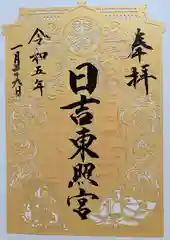 奉拝
日吉東照宮
令和五年
一月二十九日